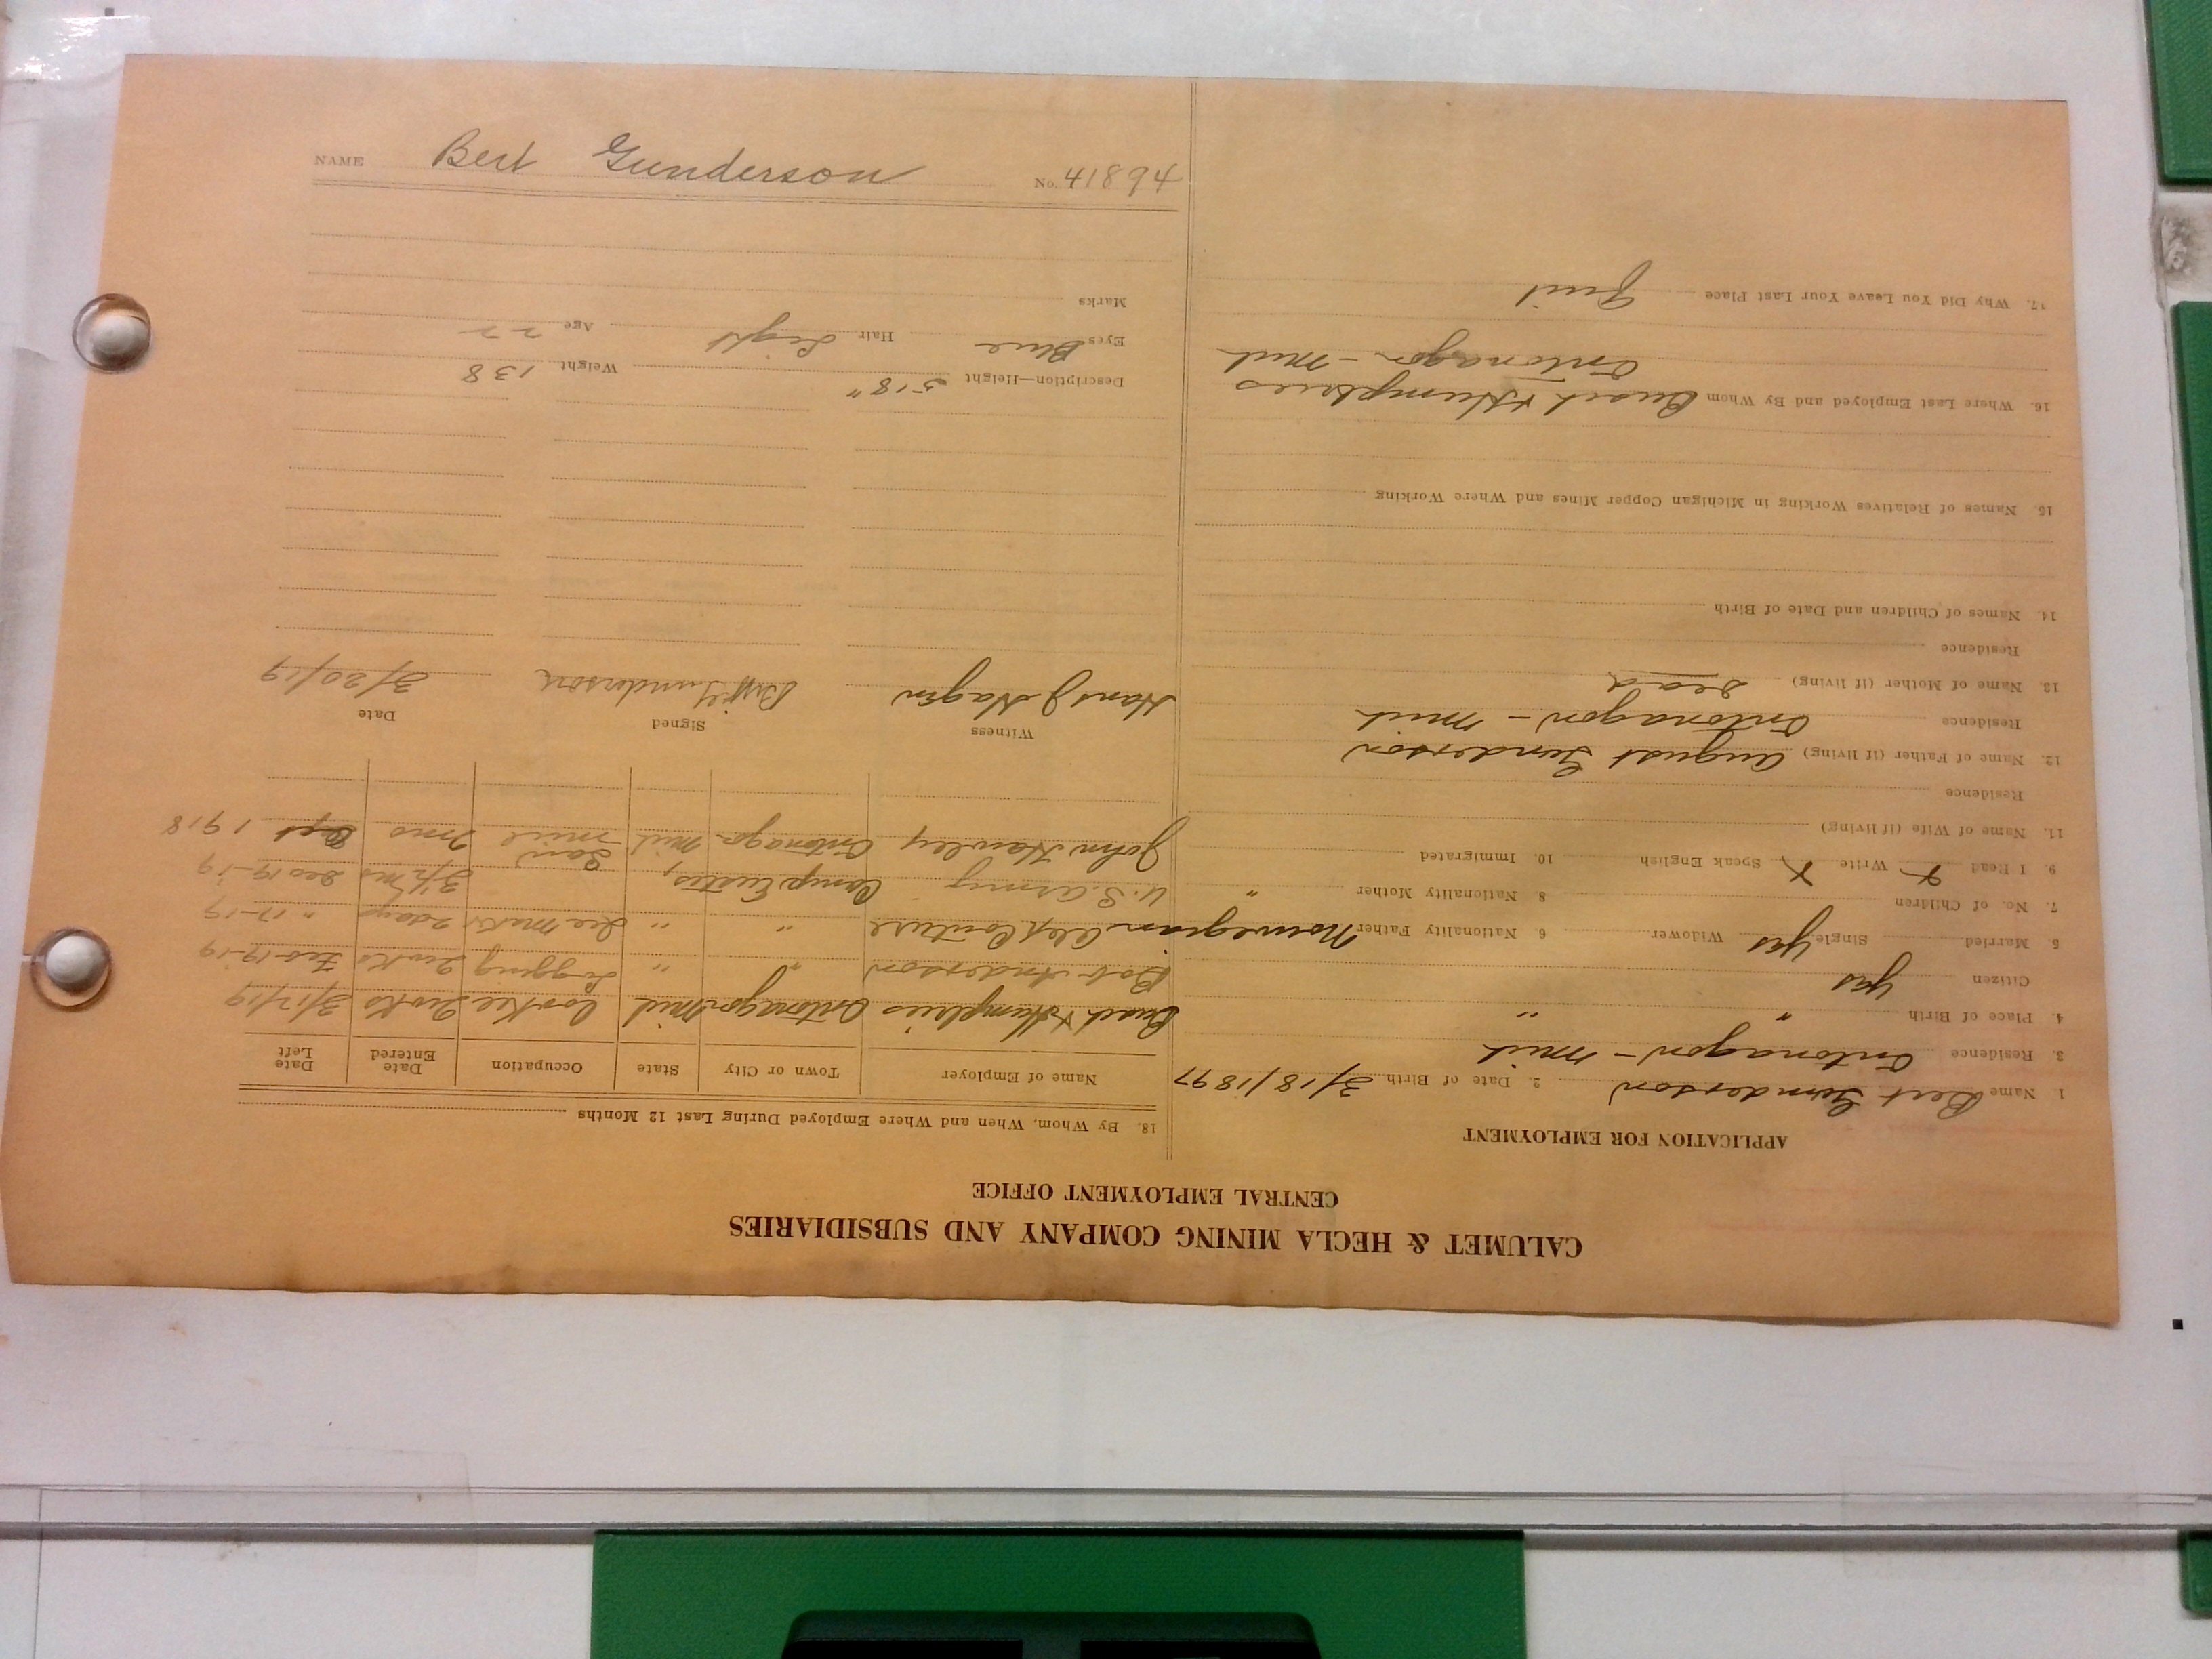 CALUMET & HECLA MINING COMPANY AND SUBSIDIARIES
CENTRAL EMPLOYMENT OFFICE
APPLICATION FOR EMPLOYMENT
1. Name Bert Gunderson 2. Date of Birth 3/18/1897
3. Residence Ontonagon - Mich
4. Place of Birth " "
Citizen yes
5. Married Single yes Widower 6. Nationality Father Norwegian
7. No. of Children 8. Nationality Mother "
9. I Read x Write x Speak English 10. Immigrated
11. Name of Wife (if living)
Residence
12. Name of Father (if living) August Gunderson
Residence Ontonagon - Mich
13. Name of Mother (if living) Dead
Residence
14. Names of Children and Date of Birth
15. Names of Relatives Working in Michigan Copper Mines and Where Working
16. Where Last Employed and By Whom & Humphries
Ontonagon - Mich
17. Why Did You Leave Your Last Place Quit
18. By Whom, When and Where Employed During Last 12 Months
Name of Employer Town or City State Occupation Date Entered Date Left
& Humphries Ontonagon Mich Cookee 2 wks 3/17/19
Bob Anderson " " Logging 2 wks Feb 19-19
Alex Couture " " Ice Maker 2 days " 17-19
U.S. Army Camp Eustis, 3 1/2 ms Dec 19-19
John Hawley Ontonagon Mich Saw Mill 7 mos Sept 1918
Witness Signed Date
Hans J Hagen Gunderson 3/20/19
Description—Height 5'8" Weight 138
Eyes Blue Hair Light Age 22
Marks
NAME Bert Gunderson No. 41894